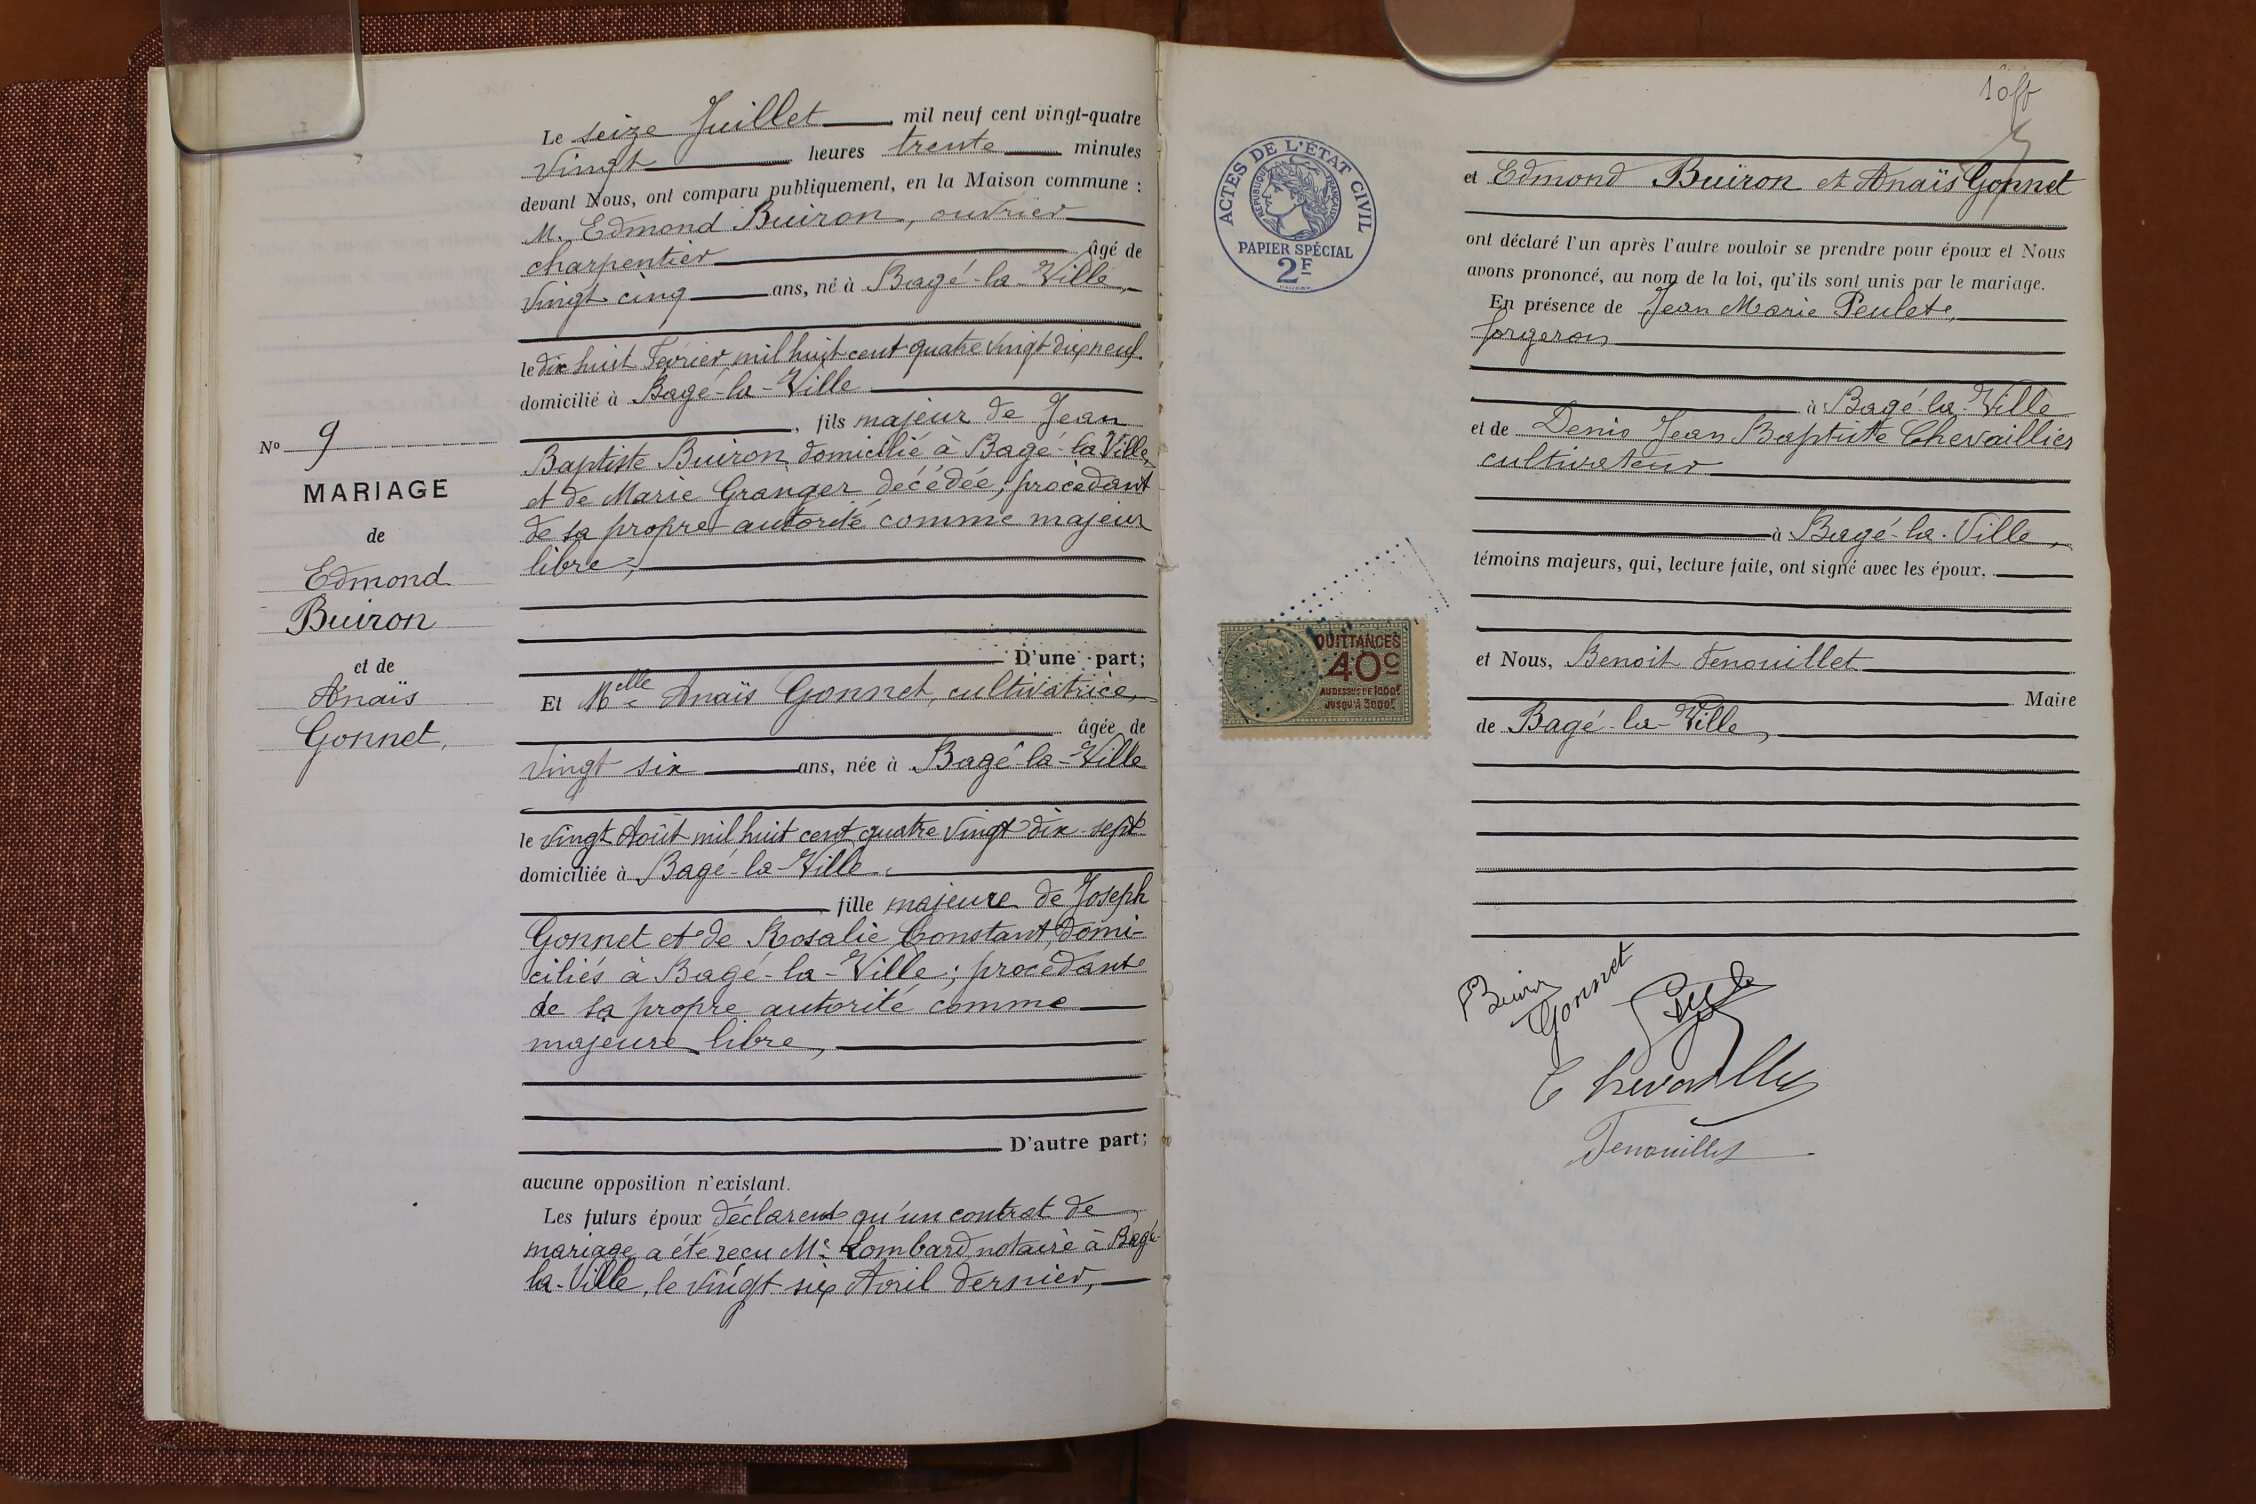 Le seize Juillet mil neuf cent vingt-quatre
vingt heures trente minutes
devant Nous, ont comparu publiquement, en la Maison commune :
M. Edmond Buiron, ouvrier
charpentier âgé de
vingt cinq ans, né à Bagé-la-Ville,
le dix huit Février mil huit cent quatre vingt dix neuf
domicilié à Bagé-la-Ville
, fils majeur de Jean
Baptiste Buiron domicilié à Bagé-la-Ville,
et de Marie Granger décédée; procédant
de sa propre autorité comme majeur
libre,
D'une part;
Nº 9
MARIAGE
de
Edmond
Buiron
et de
Anaïs
Gonnet,
Et Melle Anaïs Gonnet, cultivatrice,
âgée de
vingt six ans, née à Bagé-la-Ville
le vingt Août mil huit cent quatre vingt dix-sept
domiciliée à Bagé-la-Ville
fille majeure de Joseph
Gonnet et de Rosalie Constant, domi-
ciliés à Bagé-la-Ville; procédant
de sa propre autorité comme
majeure libre,
D'autre part;
aucune opposition n'existant.
Les futurs époux déclarent qu'un contrat de
mariage a été reçu Me Lombard notaire à Bagé-
la-Ville, le vingt six Avril dernier,
ACTES DE L'ÉTAT CIVIL
RÉPUBLIQUE FRANÇAISE
PAPIER SPÉCIAL
2F
et Edmond Buiron et Anaïs Gonnet
ont déclaré l'un après l'autre vouloir se prendre pour époux et Nous
avons prononcé, au nom de la loi, qu'ils sont unis par le mariage.
En présence de Jean Marie Peulet,
forgeron
à Bagé-la-Ville
et de Denis Jean Baptiste Chevaillier
cultivateur
à Bagé-la-Ville,
témoins majeurs, qui, lecture faite, ont signé avec les époux,
QUITTANCES
40c
AU DESSUS DE 1000f
JUSQU'À 3000f
et Nous, Benoit Fenouillet
Maire
de Bagé-la-Ville,
Buiron
Gonnet
Chevaillier
Fenouillet